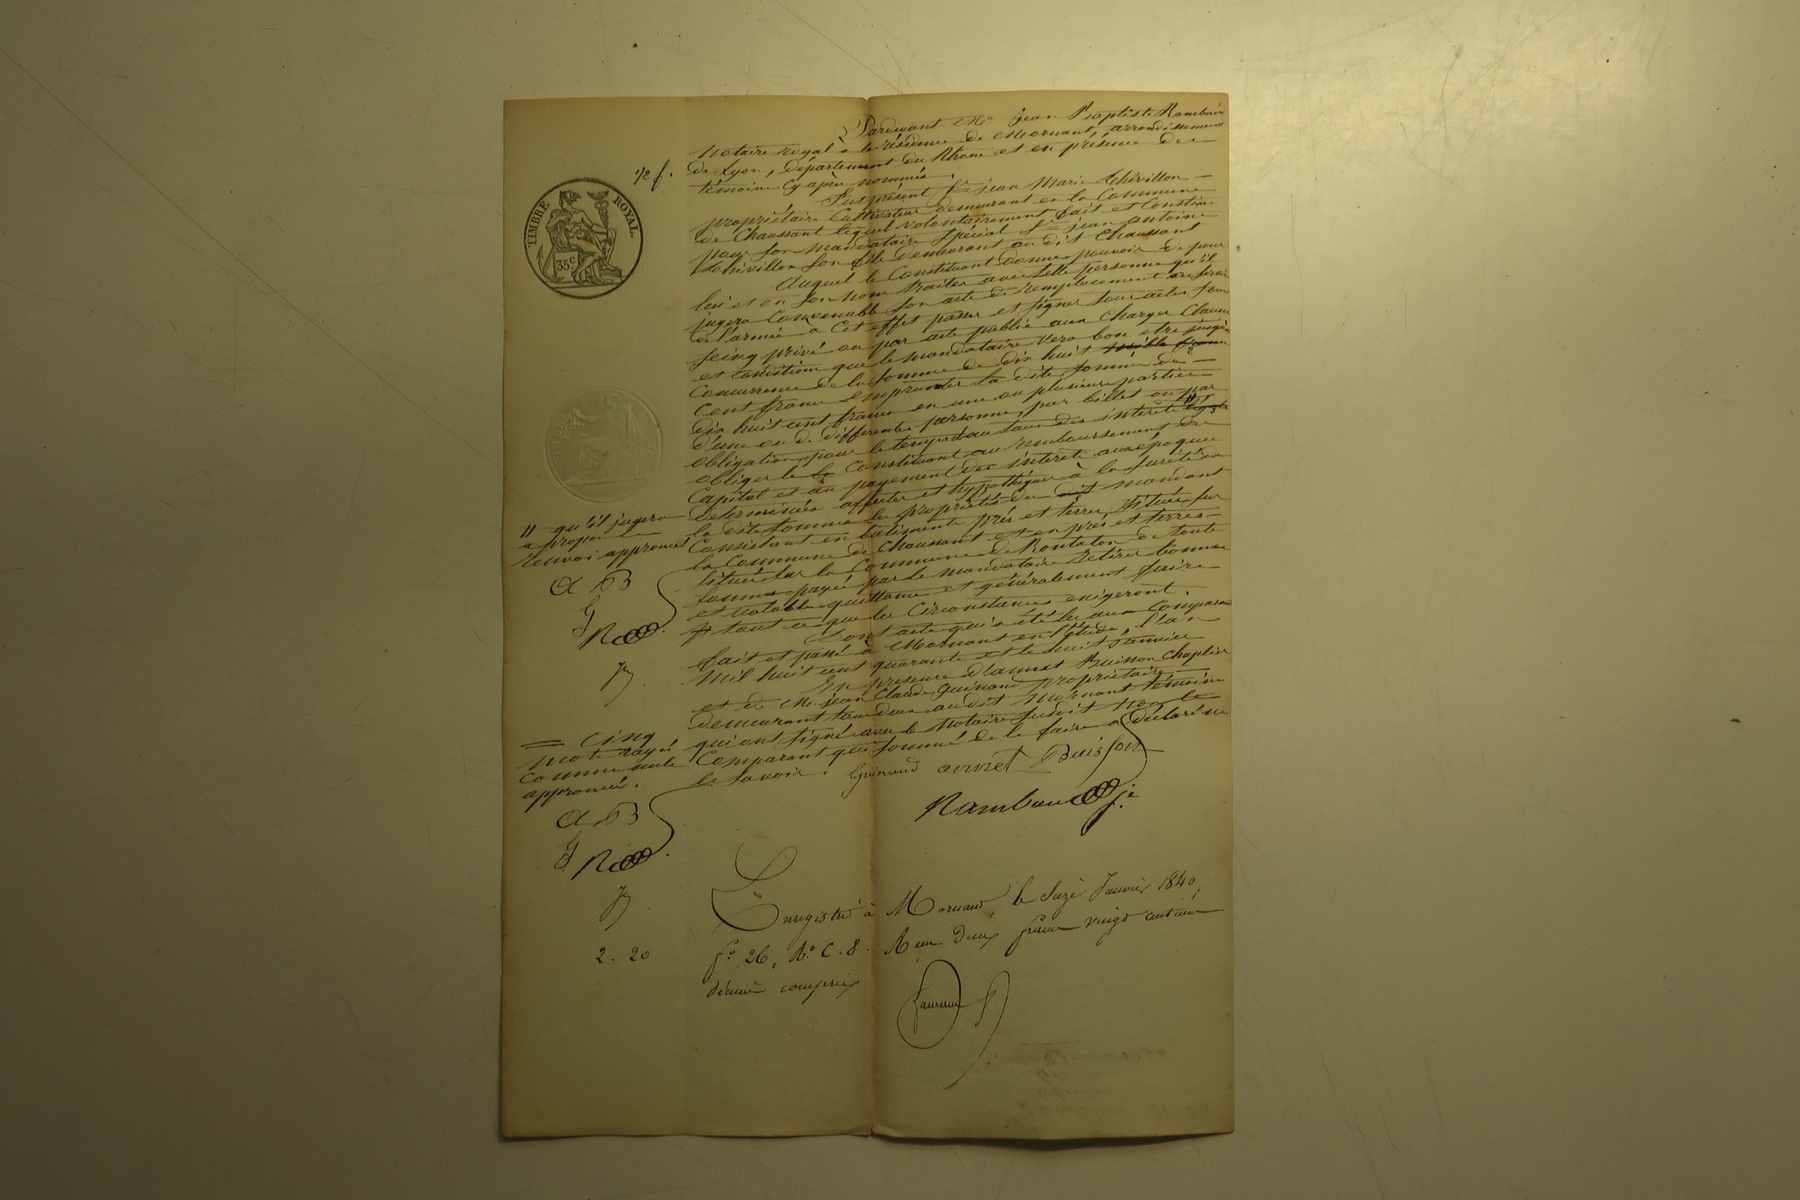 Pardevant Me Jean Baptiste Rambaud
Notaire royal à la résidence de Mornant, arrondissement
de Lyon, département du Rhône et en présence des
témoins cy après nommés.
1/2 f.
TIMBRE ROYAL.
35 c
Fut présent Sr jean Marie Thivillon
propriétaire Cultivateur demeurant en la Commune
de Chaussant lequel volontairement fait et Constitue
pour son mandataire spécial Sr jean antoine
Thivillon son fils demeurant au dit Chaussant
Auquel le Constituant donne pouvoir de pour
lui et en son nom traiter avec telle personne qu'il
jugera Convenable son acte de remplacement au
de l'armée à Cet effet passer et signer tous actes sous
seing privé ou par acte public aux Charges Clauses
et Conditions que le mandataire vera bon etre jusqu'à
Concurrence de la somme de dix huit mille francs
Cent francs Emprunter la dite somme de
dix huit cent francs en une ou plusieurs parties
d'une ou de differentes personnes, par billets ou par
obligations pour le temps et au taux des interets
obliger le Constituant au remboursement du
Capital et au payement des interets aux époques
determinées affecter et hypothéquer à la sureté de
la dite somme les propriétés du dit mandant
Consistant en batiments prés et terres, situés sur
la Commune de Chaussant et en prés et terres
situés sur la Commune de Rontalon de toute
sommes payée par le mandataire retirer bonnes
et valable quittance et généralement faire
tout ce que les Circonstances exigeront.
Dont acte qui a été lu aux Comparant
fait et passé à Mornant en l'étude, l'an
Mil huit cent quarante et le huit Janvier
En présence d'annet Buisson Chapelier
et de M. jean Claude Guinand propriétaire
demeurant tous deux au dit Mornant témoins
qui ont signé avec le Notaire susdit Non le
Comparant qui sommé de le faire a déclaré ne
le savoir.
// qu'il jugera
a propos
renvoi approuvé
A B
G
R
= cinq
mots rayés
comme nuls
approuvé.
A B
G
R
Guinand annet Buisson
Rambaud
Enregistré à Mornant, le Seize Janvier 1840,
2. 20
fo 26, Ro C. 8. Reçu deux francs vingt centimes
décime compris